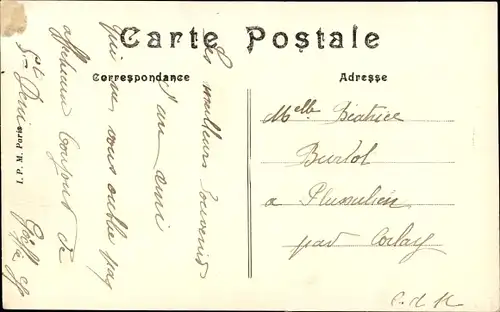 Carte Postale
Correspondance
Adresse
Les meilleurs Souvenirs
d'un ami
qui ne vous oublie pas
affectueux toujours de
St Denis
Melle Béatrice
Burlot
a Plussulien
par Corlay
C. d. N
I. P. M. Paris